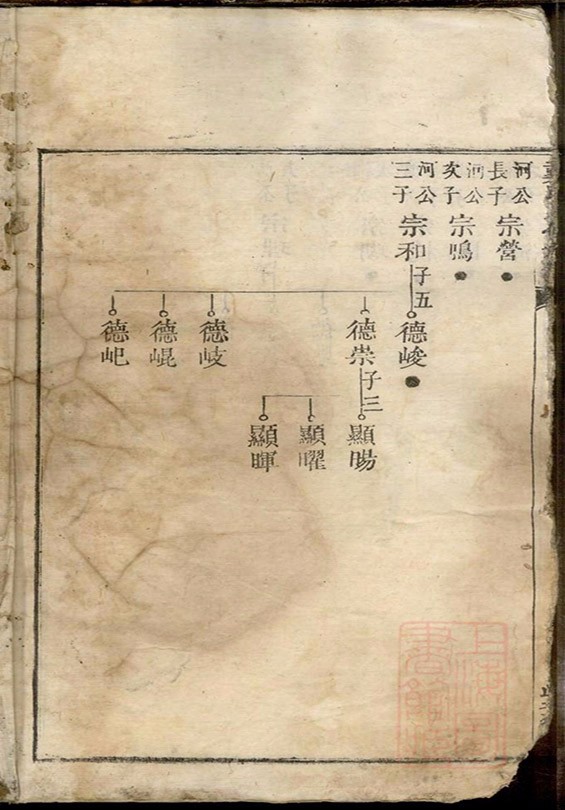 河公長子宗營
河公次子宗鳴
河公三子宗和子五
德峻
德崇子三
德岐
德崐
德𡵆
顯暘
顯曜
顯暉
上海圖書館藏